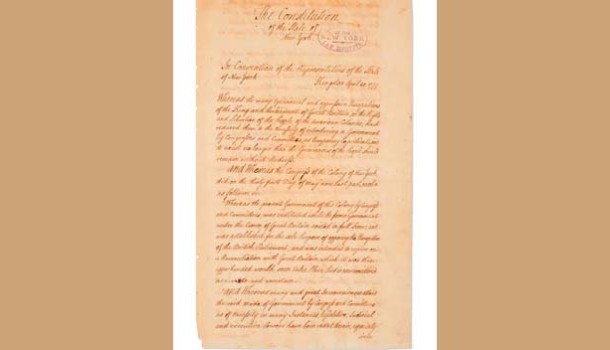 The Constitution
of the State of
New York.
NEW YORK
LAW INSTITUTE
In Convention of the Representatives of the State
of New York
Kingston April 20 1777
Whereas the many tyrannical and oppressive Usurpations
of the King and Parliament of Great Britain, on the Rights
and Liberties of the People of the American Colonies, had
reduced them to the Necessity of introducing a Government
by Congresses and Committees, as temporary Expedients
to exist no longer than the Grievances of the People should
remain without Redress.
And Whereas the Congress of the Colony of New York
did on the thirty first Day of May now last past, resolve
as follows, viz.
Whereas the present Government of this Colony by Congress
and Committees was instituted while the former Government
under the Crown of Great Britain existed in full Force; and
was established for the sole Purpose of opposing the Usurpation
of the British Parliament, and was intended to expire on
a Reconciliation with Great Britain, which it was then
apprehended would soon take Place, but is now considered
as remote and uncertain.
And Whereas many and great Inconveniences attend
the said Mode of Government by Congress and Committees
as of Necessity in many Instances Legislative, Judicial
and executive Powers have been vested therein, especially